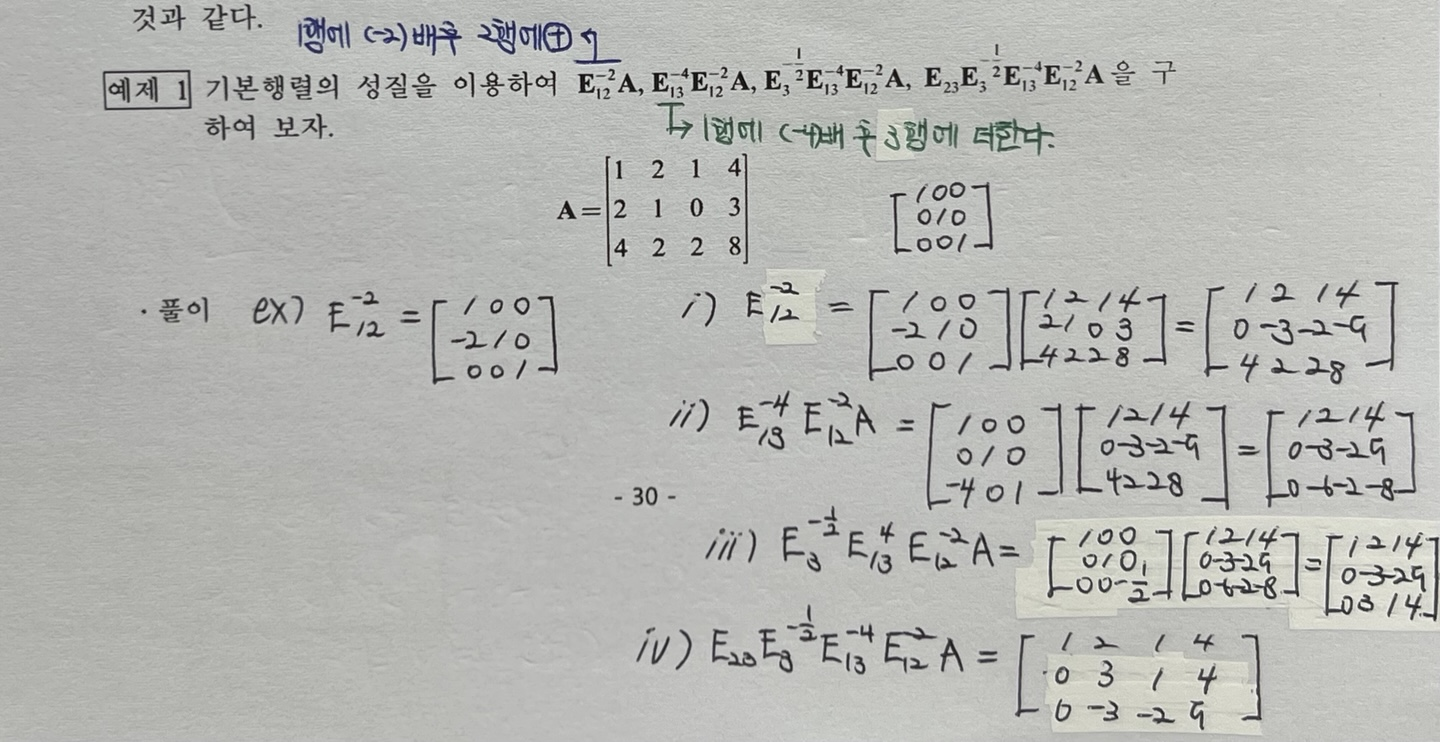 것과 같다.
1행에 (-2)배후 2행에 ⊕
예제 1 기본행렬의 성질을 이용하여 E₁₂⁻²A, E₁₃⁻⁴E₁₂⁻²A, E₃^{-1/2}E₁₃⁻⁴E₁₂⁻²A, E₂₃E₃^{-1/2}E₁₃⁻⁴E₁₂⁻²A 을 구
하여 보자.
↳ 1행에 (-4)배 후 3행에 더한다.
A = [1 2 1 4; 2 1 0 3; 4 2 2 8]
[1 0 0; 0 1 0; 0 0 1]
· 풀이 ex) E₁₂⁻² = [1 0 0; -2 1 0; 0 0 1]
i) E₁₂⁻² = [1 0 0; -2 1 0; 0 0 1] [1 2 1 4; 2 1 0 3; 4 2 2 8] = [1 2 1 4; 0 -3 -2 -9; 4 2 2 8]
ii) E₁₃⁻⁴ E₁₂⁻² A = [1 0 0; 0 1 0; -4 0 1] [1 2 1 4; 0 -3 -2 -9; 4 2 2 8] = [1 2 1 4; 0 -3 -2 9; 0 -6 -2 -8]
- 30 -
iii) E₃^{-1/2} E₁₃⁴ E₁₂⁻² A = [1 0 0; 0 1 0; 0 0 -1/2] [1 2 1 4; 0 -3 -2 9; 0 -6 -2 -8] = [1 2 1 4; 0 -3 -2 9; 0 3 1 4]
iv) E₂₃ E₃^{-1/2} E₁₃⁻⁴ E₁₂⁻² A = [1 2 1 4; 0 3 1 4; 0 -3 -2 9]